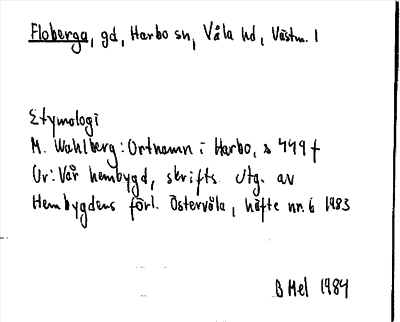 Floberga, gd, Harbo sn, Våla hd, Västm. l
Etymologi
M. Wahlberg: Ortnamn i Harbo, s 449 f
Ur: Vår hembygd, skrifts. utg. av
Hembygdens förl. Östervåla, häfte nr. 6 1983
B Mel 1984